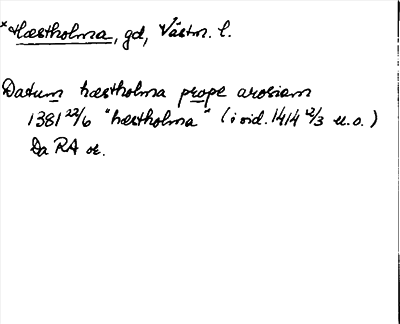 *Hæstholma, gd, Västm. l.
Datum hæstholma prope arosiam
1381 22/6 "hæstholma" (i vid. 1414 12/3 u.o.)
Da RA or.